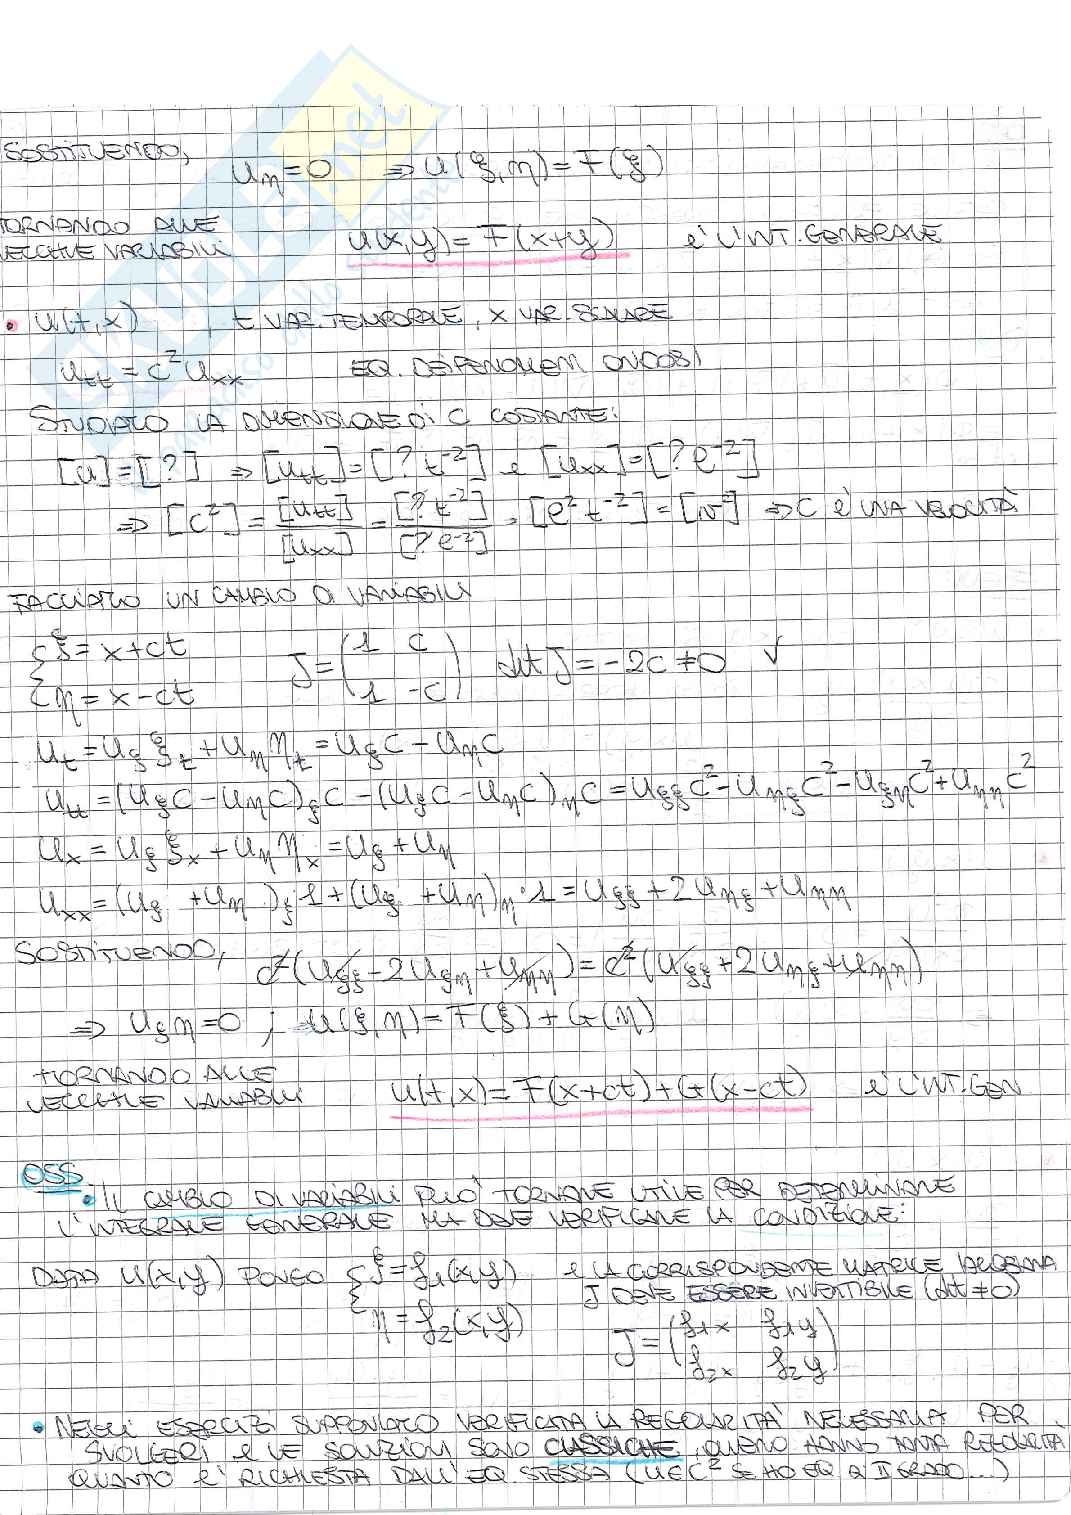 SOSTITUENDO,
u_η = 0 ⇒ u(ξ,η) = F(ξ)
TORNANDO ALLE
VECCHIE VARIABILI u(x,y) = F(x+y) è L'INT. GENERALE
• u(t,x) , t VAR. TEMPORALE, x VAR. SCALARE
u_tt = c² u_xx EQ. DEI FENOMENI ONDOSI
STUDIAMO LA DIMENSIONE DI C COSTANTE:
[u] = [?] ⇒ [u_tt] = [? t⁻²] e [u_xx] = [? l⁻²]
⇒ [c²] = [u_tt]/[u_xx] = [? t⁻²]/[? l⁻²] = [l² t⁻²] = [v²] ⇒ C È UNA VELOCITÀ
FACCIAMO UN CAMBIO DI VARIABILI
{ ξ = x+ct J = (1 c det J = -2c ≠ 0 ✓
{ η = x-ct 1 -c)
u_t = u_ξ ξ_t + u_η η_t = u_ξ c - u_η c
u_tt = (u_ξ c - u_η c)_ξ c - (u_ξ c - u_η c)_η c = u_ξξ c² - u_ηξ c² - u_ξη c² + u_ηη c²
u_x = u_ξ ξ_x + u_η η_x = u_ξ + u_η
u_xx = (u_ξ + u_η)_ξ · 1 + (u_ξ + u_η)_η · 1 = u_ξξ + 2u_ηξ + u_ηη
SOSTITUENDO,
c² (u_ξξ - 2u_ξη + u_ηη) = c² (u_ξξ + 2u_ηξ + u_ηη)
⇒ u_ξη = 0 ; u(ξ,η) = F(ξ) + G(η)
TORNANDO ALLE
VECCHIE VARIABILI u(t,x) = F(x+ct) + G(x-ct) è L'INT. GEN
OSS
• IL CAMBIO DI VARIABILI PUÒ TORNARE UTILE PER DETERMINARE
L'INTEGRALE GENERALE MA DEVE VERIFICARE LA CONDIZIONE:
DATA u(x,y) PONGO { ξ = f₁(x,y) E LA CORRISPONDENTE MATRICE JACOBIANA
{ η = f₂(x,y) J DEVE ESSERE INVERTIBILE (det ≠ 0)
J = (f₁x f₁y
f₂x f₂y)
• NEGLI ESERCIZI SUPPONIAMO VERIFICATA LA REGOLARITÀ NECESSARIA PER
SVOLGERLI E LE SOLUZIONI SONO CLASSICHE, OVVERO HANNO TANTA REGOLARITÀ
QUANTO È RICHIESTA DALL'EQ. STESSA (u∈C² SE HO EQ DI II GRADO...)